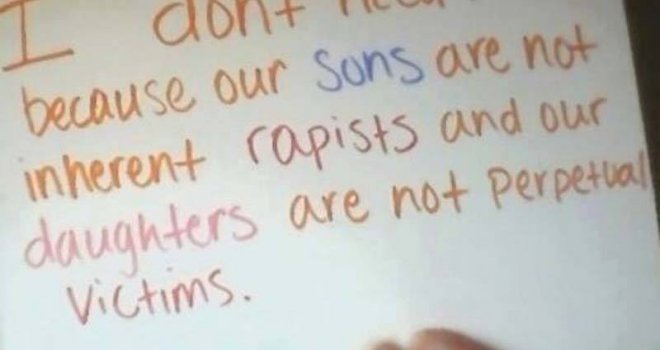 I dont need
because our sons are not
inherent rapists and our
daughters are not perpetual
victims.